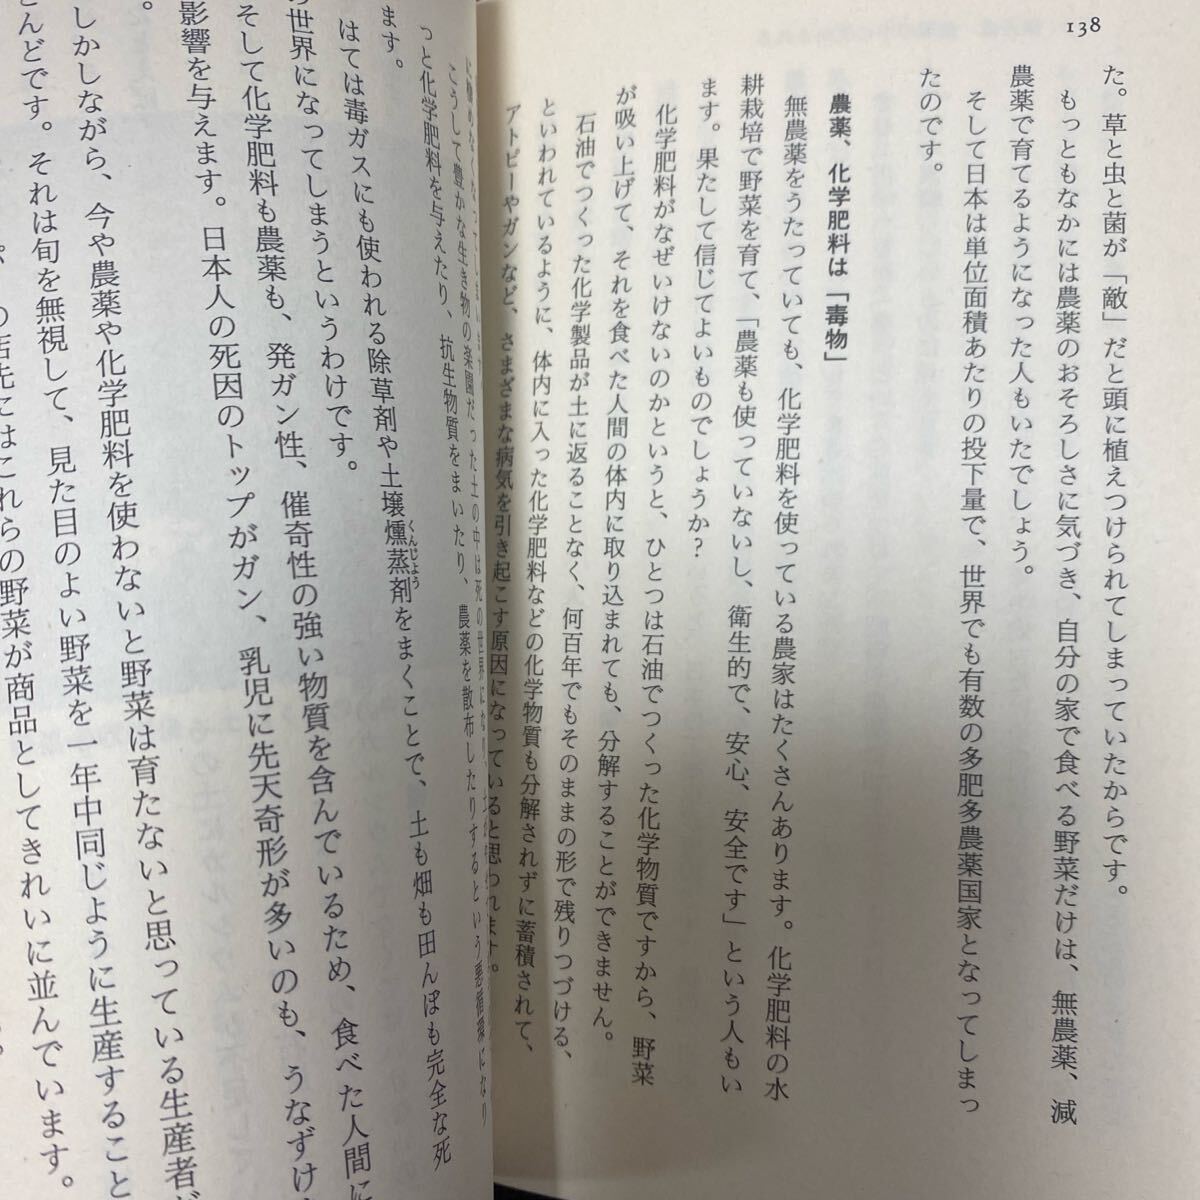 138
た。草と虫と菌が「敵」だと頭に植えつけられてしまっていたからです。
もっともなかには農薬のおそろしさに気づき、自分の家で食べる野菜だけは、無農薬、減
農薬で育てるようになった人もいたでしょう。
そして日本は単位面積あたりの投下量で、世界でも有数の多肥多農薬国家となってしまっ
たのです。
農薬、化学肥料は「毒物」
無農薬をうたっていても、化学肥料を使っている農家はたくさんあります。化学肥料の水
耕栽培で野菜を育て、「農薬も使っていないし、衛生的で、安心、安全です」という人もい
ます。果たして信じてよいものでしょうか?
化学肥料がなぜいけないのかというと、ひとつは石油でつくった化学物質ですから、野菜
が吸い上げて、それを食べた人間の体内に取り込まれても、分解することができません。
石油でつくった化学製品が土に返ることなく、何百年でもそのままの形で残りつづける、
といわれているように、体内に入った化学肥料などの化学物質も分解されずに蓄積されて、
アトピーやガンなど、さまざまな病気を引き起こす原因になっていると思われます。
こうして豊かな生き物の楽園だった土の中は死の世界になり
っと化学肥料を与えたり、抗生物質をまいたり、農薬を散布したりするという悪循環になり
ます。
はては毒ガスにも使われる除草剤や土壌燻蒸剤をまくことで、土も畑も田んぼも完全な死
くんじょう
の世界になってしまうというわけです。
そして化学肥料も農薬も、発ガン性、催奇性の強い物質を含んでいるため、食べた人間に
影響を与えます。日本人の死因のトップがガン、乳児に先天奇形が多いのも、うなずけ
しかしながら、今や農薬や化学肥料を使わないと野菜は育たないと思っている生産者が
とんどです。それは旬を無視して、見た目のよい野菜を一年中同じように生産すること
の店先にはこれらの野菜が商品としてきれいに並んでいます。